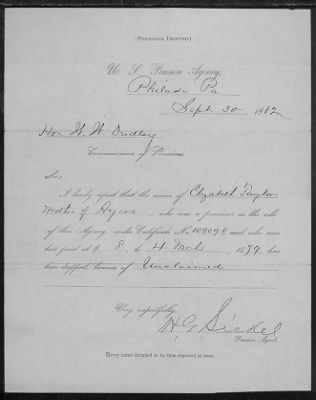 (PENSIONER DROPPED.)
U. S. Pension Agency,
Philada Pa
Sept. 30, 1882
Hon W. W. Dudley
Commissioner of Pensions.
Sir:
I hereby report that the name of Elizabeth Taylor
Mother of who was a pensioner on the rolls
of this Agency, under Certificate No. 109098, and who was
last paid at $ 8, to 4 March, 1879, has
been dropped, because of Unclaimed
Very respectfully,
H G Sickel
Pension Agent.
Every name dropped to be thus reported at once.